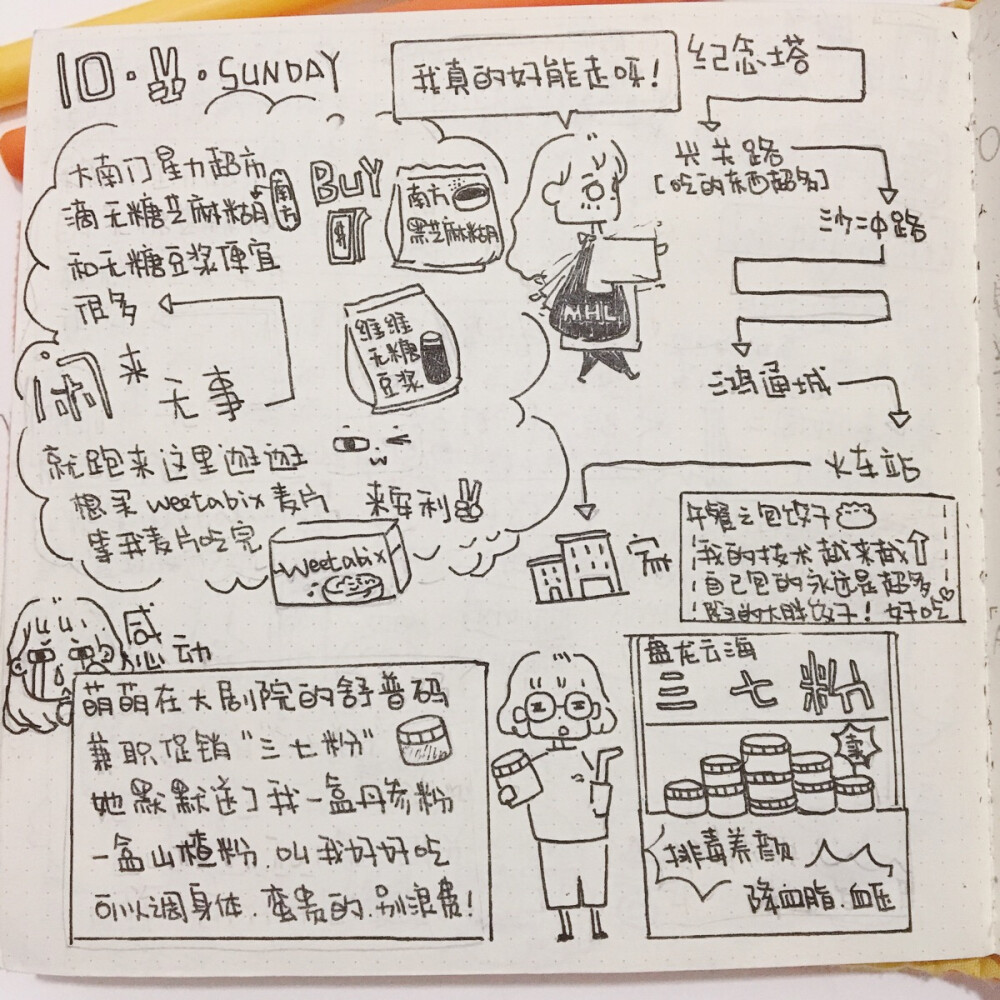 10. .SUNDAY
我真的好能走呀!
纪念塔
[吃的东西超多]
沙冲路
鸿通城
火车站
家
大南门星力超市
滴无糖芝麻糊
南方
和无糖豆浆便宜
很多
BUY
$
南方
黑芝麻糊
维维
无糖
豆浆
MHL
闲来
无事
就跑来这里逛逛
想买weetabix麦片
等我麦片吃完
来安利
weetabix
午餐之包饺子
我的技术越来越↑
自己包的永远是超多
馅的大胖饺子!好吃
感动
萌萌在大剧院的舒普码
兼职促销"三七粉"
她默默送了我一盒丹参粉
一盒山楂粉.叫我好好吃
可以调身体.蛮贵的.别浪费!
盘龙云海
三七粉
卖
排毒养颜
降血脂.血压